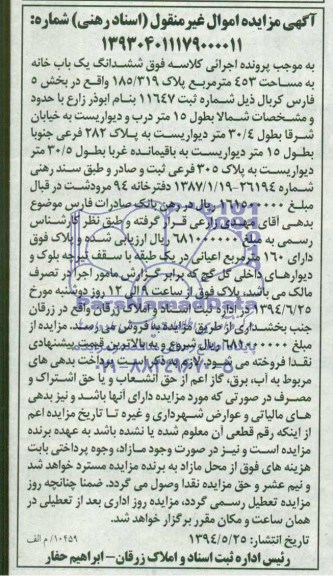 آگهی مزایده اموال غیرمنقول (اسناد رهنی) شماره:
۱۳۹۳۰۴۰۱۱۱۷۹۰۰۰۰۱۱
به موجب پرونده اجرائی کلاسه فوق ششدانگ یک باب خانه
به مساحت ۴۵۳ مترمربع پلاک ۱۸۵/۳۱۹ واقع در بخش ۵
فارس کربال ذیل شماره ثبت ۱۱۶۴۷ بنام ابوذر زارع با حدود
و مشخصات شمالا بطول ۱۵ متر درب و دیواریست به خیابان
شرقا بطول ۳۰/۴ متر دیواریست به پلاک ۲۸۲ فرعی جنوبا
بطول ۱۵ متر دیواریست به باقیمانده غربا بطول ۳۰/۵ متر
دیواریست به پلاک ۳۰۵ فرعی ثبت و صادر و طبق سند رهنی
شماره ۲۶۱۹۴-۱۳۸۷/۱/۱۹ دفترخانه ۹۴ مرودشت در قبال
مبلغ ریال در رهن بانک صادرات فارس موضوع
بدهی آقای مهدی زارعی قرار گرفته و طبق نظر کارشناس
رسمی به مبلغ ریال ارزیابی شده و پلاک فوق
دارای ۱۶۰ مترمربع اعیانی در یک طبقه با سقف تیرچه بلوک و
دیوارهای داخلی گل گچ که برابر گزارش مامور اجرا در تصرف
مالک می باشد، پلاک فوق از ساعت ۹ الی ۱۲ روز دوشنبه مورخ
۱۳۹۴/۶/۲۵ در اداره ثبت اسناد و املاک زرقان واقع در زرقان
جنب بخشداری از طریق مزایده به فروش می رسد. مزایده از
مبلغ ریال شروع و به بالاترین قیمت پیشنهادی
نقدا فروخته می شود. لازم به ذکر است پرداخت بدهی های
مربوط به آب، برق، گاز اعم از حق انشعاب و یا حق اشتراک و
مصرف در صورتی که مورد مزایده دارای آنها باشد و نیز بدهی
های مالیاتی و عوارض شهرداری و غیره تا تاریخ مزایده اعم
از اینکه رقم قطعی آن معلوم شده یا نشده باشد به عهده برنده
مزایده است و نیز در صورت وجود مازاد، وجوه پرداختی بابت
هزینه های فوق از محل مازاد به برنده مزایده مسترد خواهد شد
و نیم عشر و حق مزایده نقدا وصول می گردد. ضمنا چنانچه روز
مزایده تعطیل رسمی گردد، مزایده روز اداری بعد از تعطیلی در
همان ساعت و مکان مقرر برگزار خواهد شد.
تاریخ انتشار: ۱۳۹۴/۵/۲۵
۱۰۴۵۹/م الف
رئیس اداره ثبت اسناد و املاک زرقان- ابراهیم حفار
ParsNamadData
۰۲۱-۸۸۳۴۹۶۷۰-۵